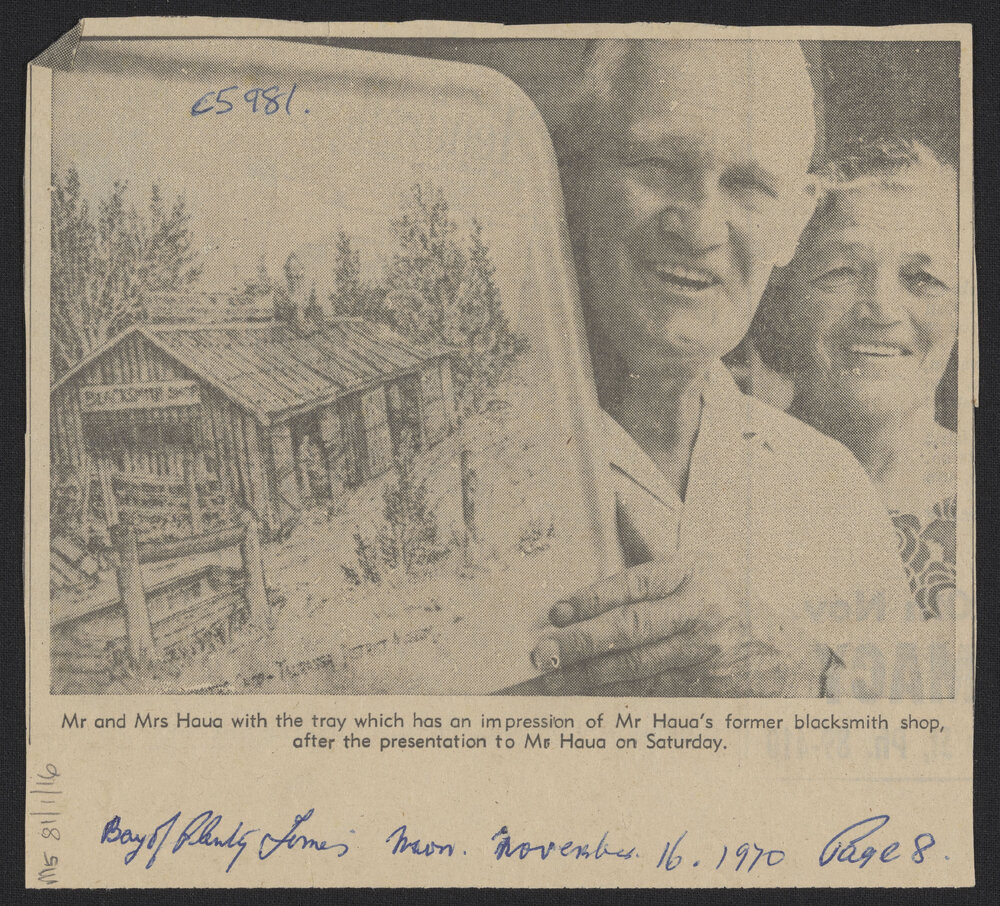 c5981.
BLACKSMITH SHOP
Mr and Mrs Haua with the tray which has an impression of Mr Haua's former blacksmith shop,
after the presentation to Mr Haua on Saturday.
Bay of Plenty Times Mon. November 16. 1970 Page 8.
Ms 81/1/16